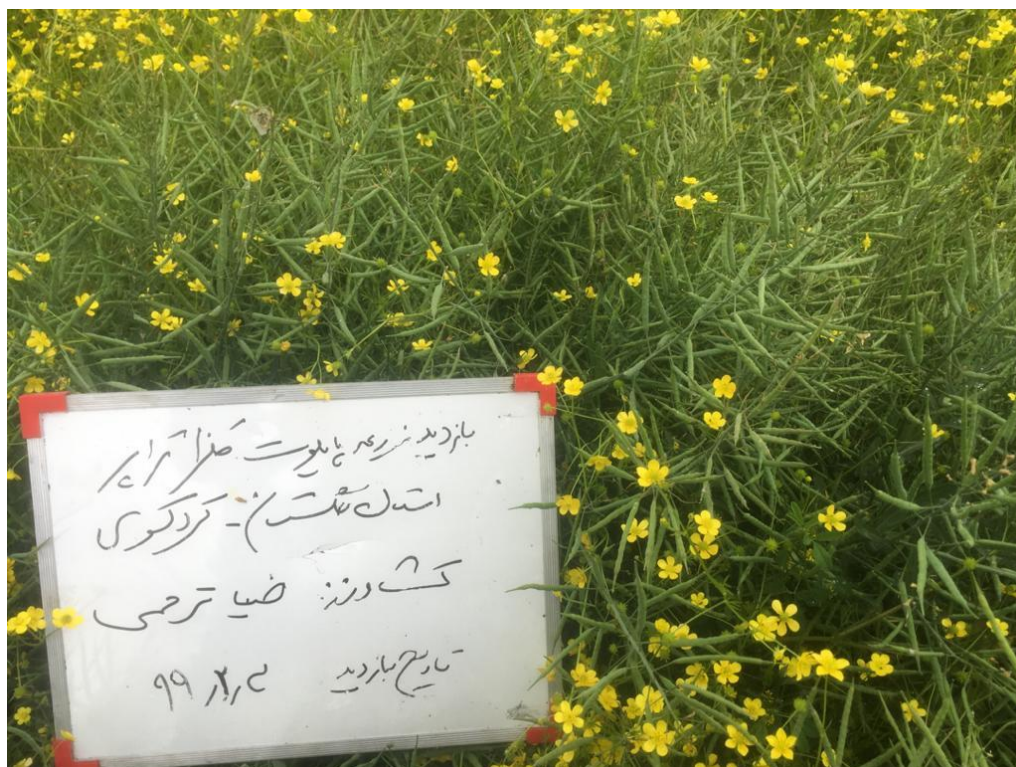 بازدید مزرعه پایلوت کلزا تراپر
استان گلستان - کردکوی
کشاورز: ضیا ترحمی
تاریخ بازدید ۹۹